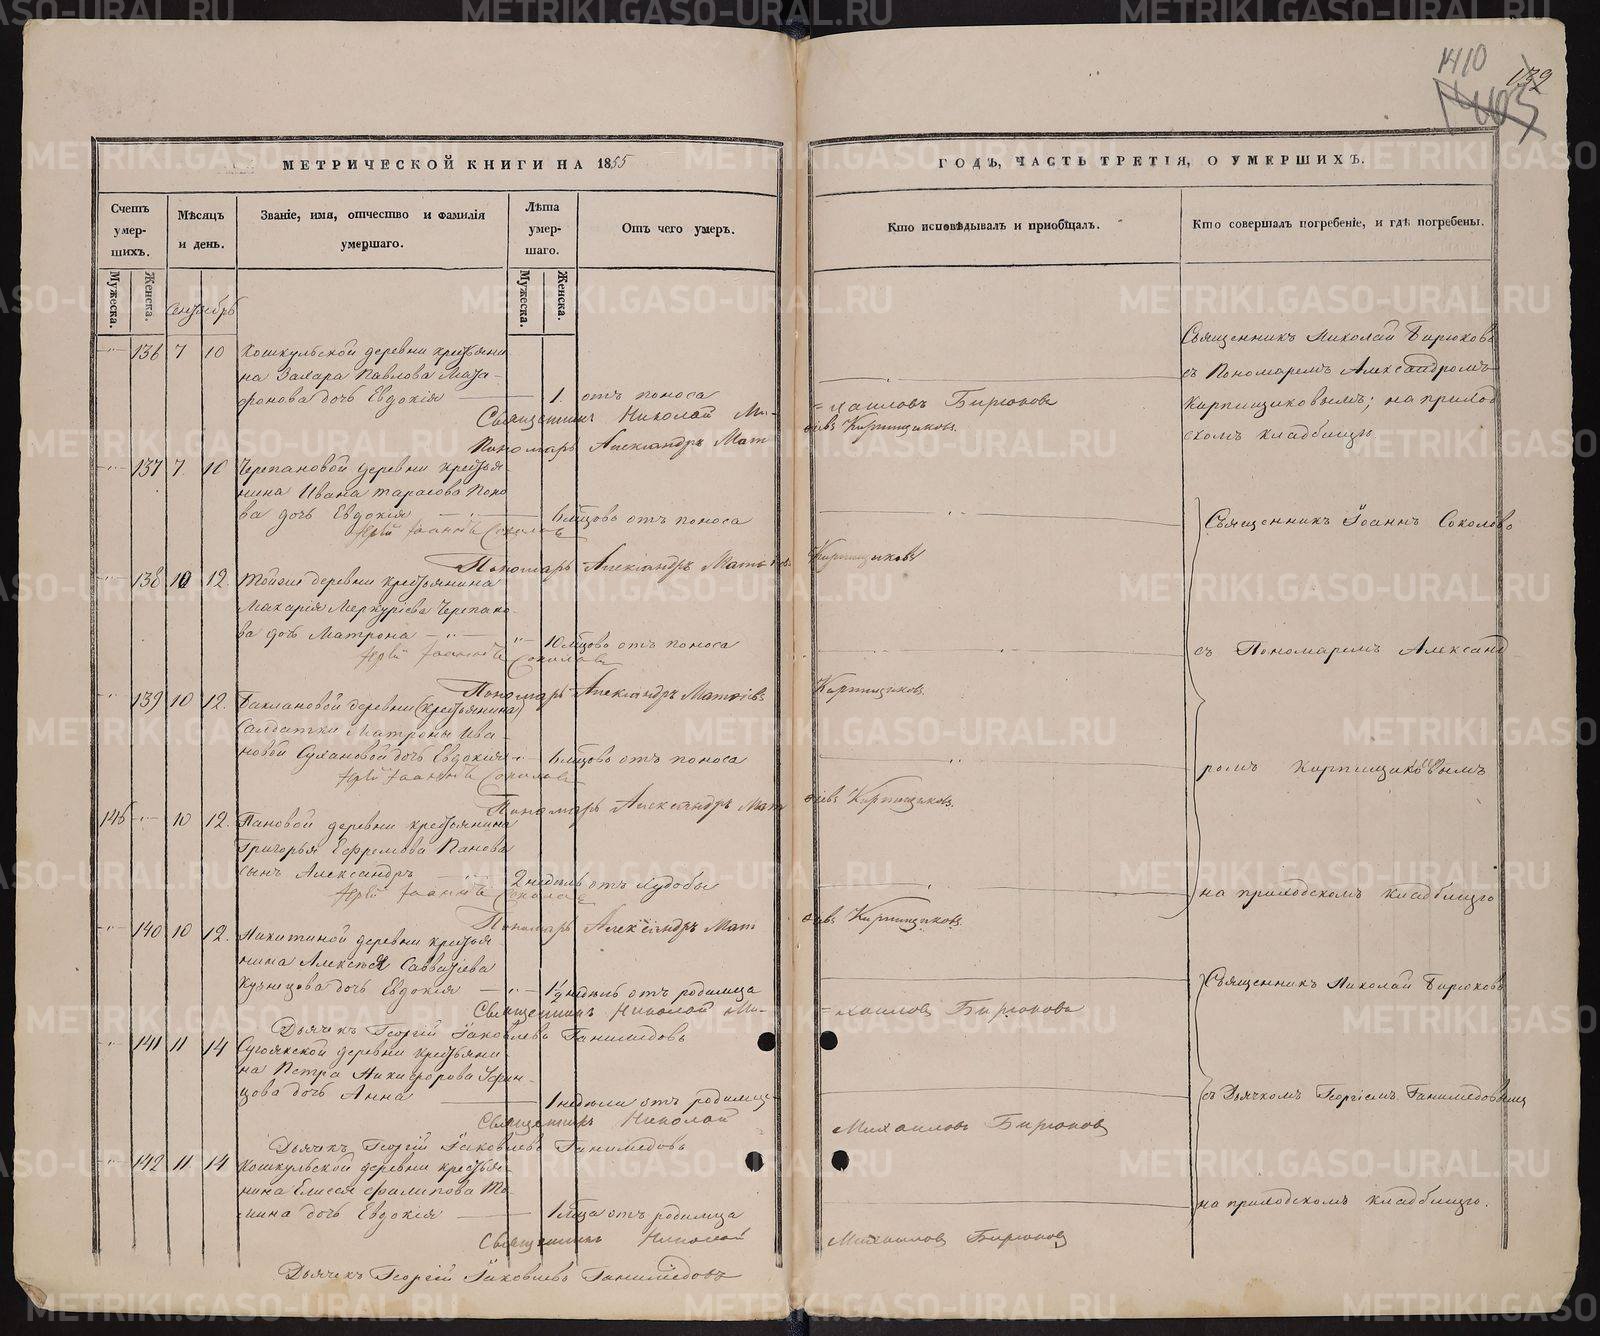 1410
132
МЕТРИЧЕСКОЙ КНИГИ НА 1855
ГОДЪ, ЧАСТЬ ТРЕТІЯ, О УМЕРШИХЪ.
Счетъ умер-шихъ.
Мужеска.
Женска.
Мѣсяцъ и день.
Званіе, имя, отчество и фамилія умершаго.
Лѣта умер-шаго.
Мужеска.
Женска.
Отъ чего умеръ.
Кто исповѣдывалъ и пріобщалъ.
Кто совершалъ погребеніе, и гдѣ погребены.
Сентябрь
136 7 10 Кошкульской деревни крестьяни
на Захара Павлова Мата-
фонова дочь Евдокія 1. отъ поноса
Священникъ Николай Ми-
=хаиловъ Бирюковъ
Пономарь Александръ Мат
ѳіевъ Кирпищиковъ
Священникъ Николай Бирюковъ
съ Пономаремъ Александромъ
Кирпищиковымъ; на приход
скомъ кладбищѣ
137 7. 10 Черепановой деревни крестья
нина Ивана Тарасова Попо
ва дочь Евдокія 6 мѣсяцовъ отъ поноса
Іерей Іоаннъ Соколовъ
Пономарь Александръ Матѳіевъ Кирпищиковъ
Священникъ Іоаннъ Соколовъ
138 10 12. Тойже деревни крестьянина
Макарія Меркурьева Черепано
ва дочь Матрона 10 мѣсяцовъ отъ поноса
Іерей Іоаннъ Соколовъ
Пономарь Александръ Матѳіевъ Кирпищиковъ
съ Пономаремъ Александ
139 10 12. Баклановой деревни (крестьянина)
Солдатки Матроны Ива
новой Сухановой дочь Евдокія 6 мѣсяцовъ отъ поноса
Іерей Іоаннъ Соколовъ
Пономарь Александръ Мат
ѳіевъ Кирпищиковъ.
ромъ Кирпищиковымъ
146 10 12. Пановой деревни крестьянина
Григорья Ефремова Панова
сынъ Александръ 2 недѣль отъ худобы
Іерей Іоаннъ Соколовъ
Пономарь Александръ Мат
ѳіевъ Кирпищиковъ.
на приходскомъ кладбищѣ
140 10 12. Никитиной деревни крестья
нина Алексѣя Савватіева
Кузнецова дочь Евдокія 1½ недѣль отъ родимца
Священникъ Николай Ми-
=хаиловъ Бирюковъ
Дьячекъ Георгій Іаковлевъ Ганимедовъ
Священникъ Николай Бирюковъ
141 11 14 Сугоякской деревни крестьяни
на Петра Никифорова
дочь Анна 1 недѣли отъ родимца
Священникъ Николай
Михаиловъ Бирюковъ
Дьячекъ Георгій Іаковлевъ Ганимедовъ
съ Дьячкомъ Георгіемъ Ганимедовымъ
142 11 14 Кошкульской деревни крестья
нина Елисея Филипова
дочь Евдокія 1 мѣсяца отъ родимца
Священникъ Николай
Михаиловъ Бирюковъ
Дьячекъ Георгій Іаковлевъ Ганимедовъ
на приходскомъ кладбищѣ.
METRIKI.GASO-URAL.RU